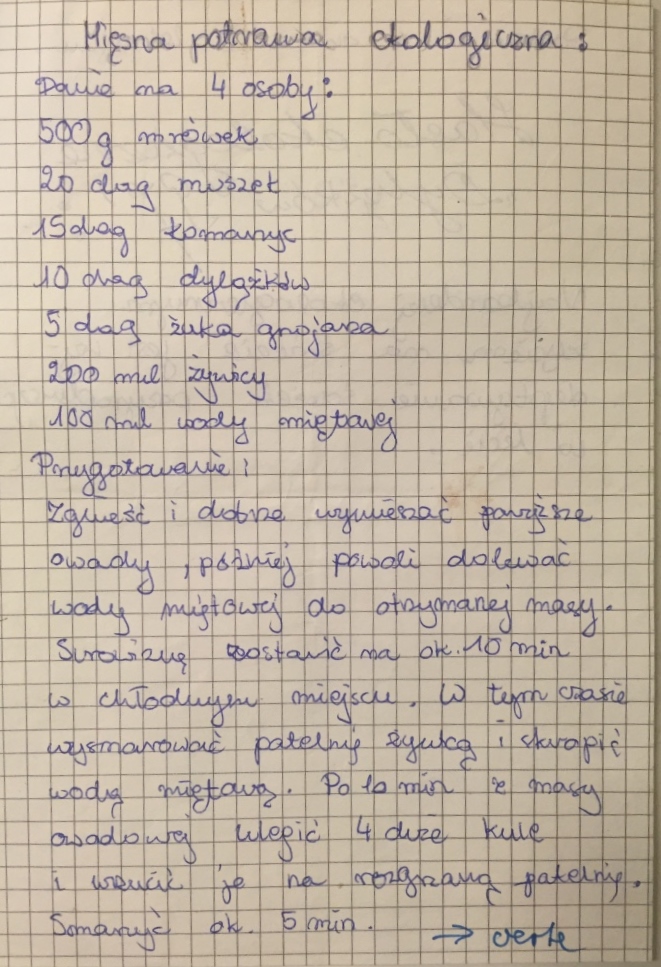 Mięsna potrawa ekologiczna :
Danie na 4 osoby:
500 g mrówek
20 dag muszek
15 dag komarzyc
10 dag dylążków
5 dag żuka gnojaza
200 ml żywicy
100 ml wody miętowej
Przygotowanie :
Zgnieść i dobrze wymieszać powyższe
owady , później powoli dolewać
wody miętowej do otrzymanej masy.
Surowiznę zostawić na ok. 10 min
w chłodnym miejscu. W tym czasie
wysmarować patelnię żywicą i skropić
wodą miętową. Po 10 min z masy
owadowej ulepić 4 duże kule
i wrzucić je na rozgrzaną patelnię.
Smażyć ok. 5 min. → verte